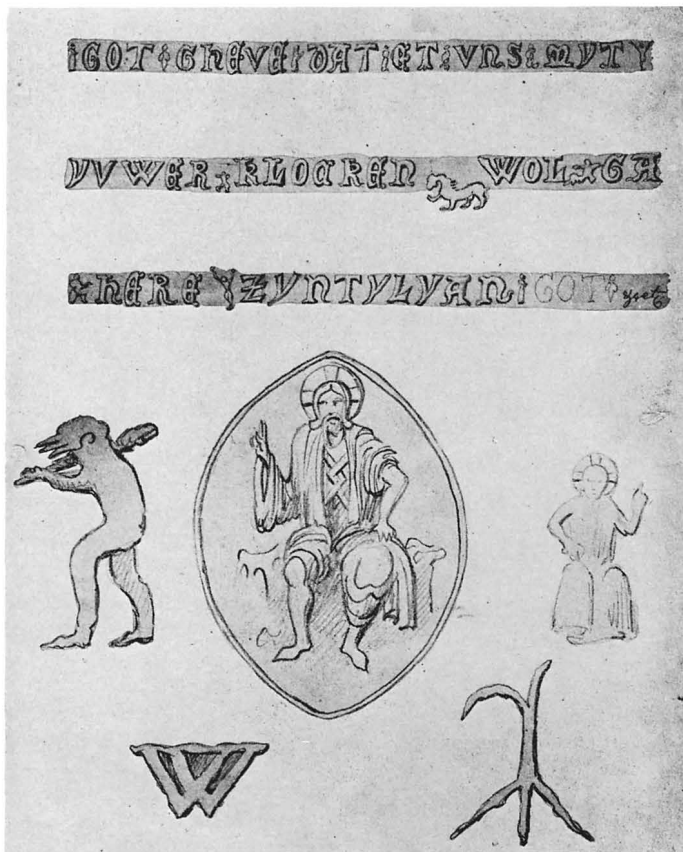 GOT GHEVE DAT ET UNS MVTY
YVWER KLOCKEN WOL GA
HERE ZVNTYLYAN GOT
W